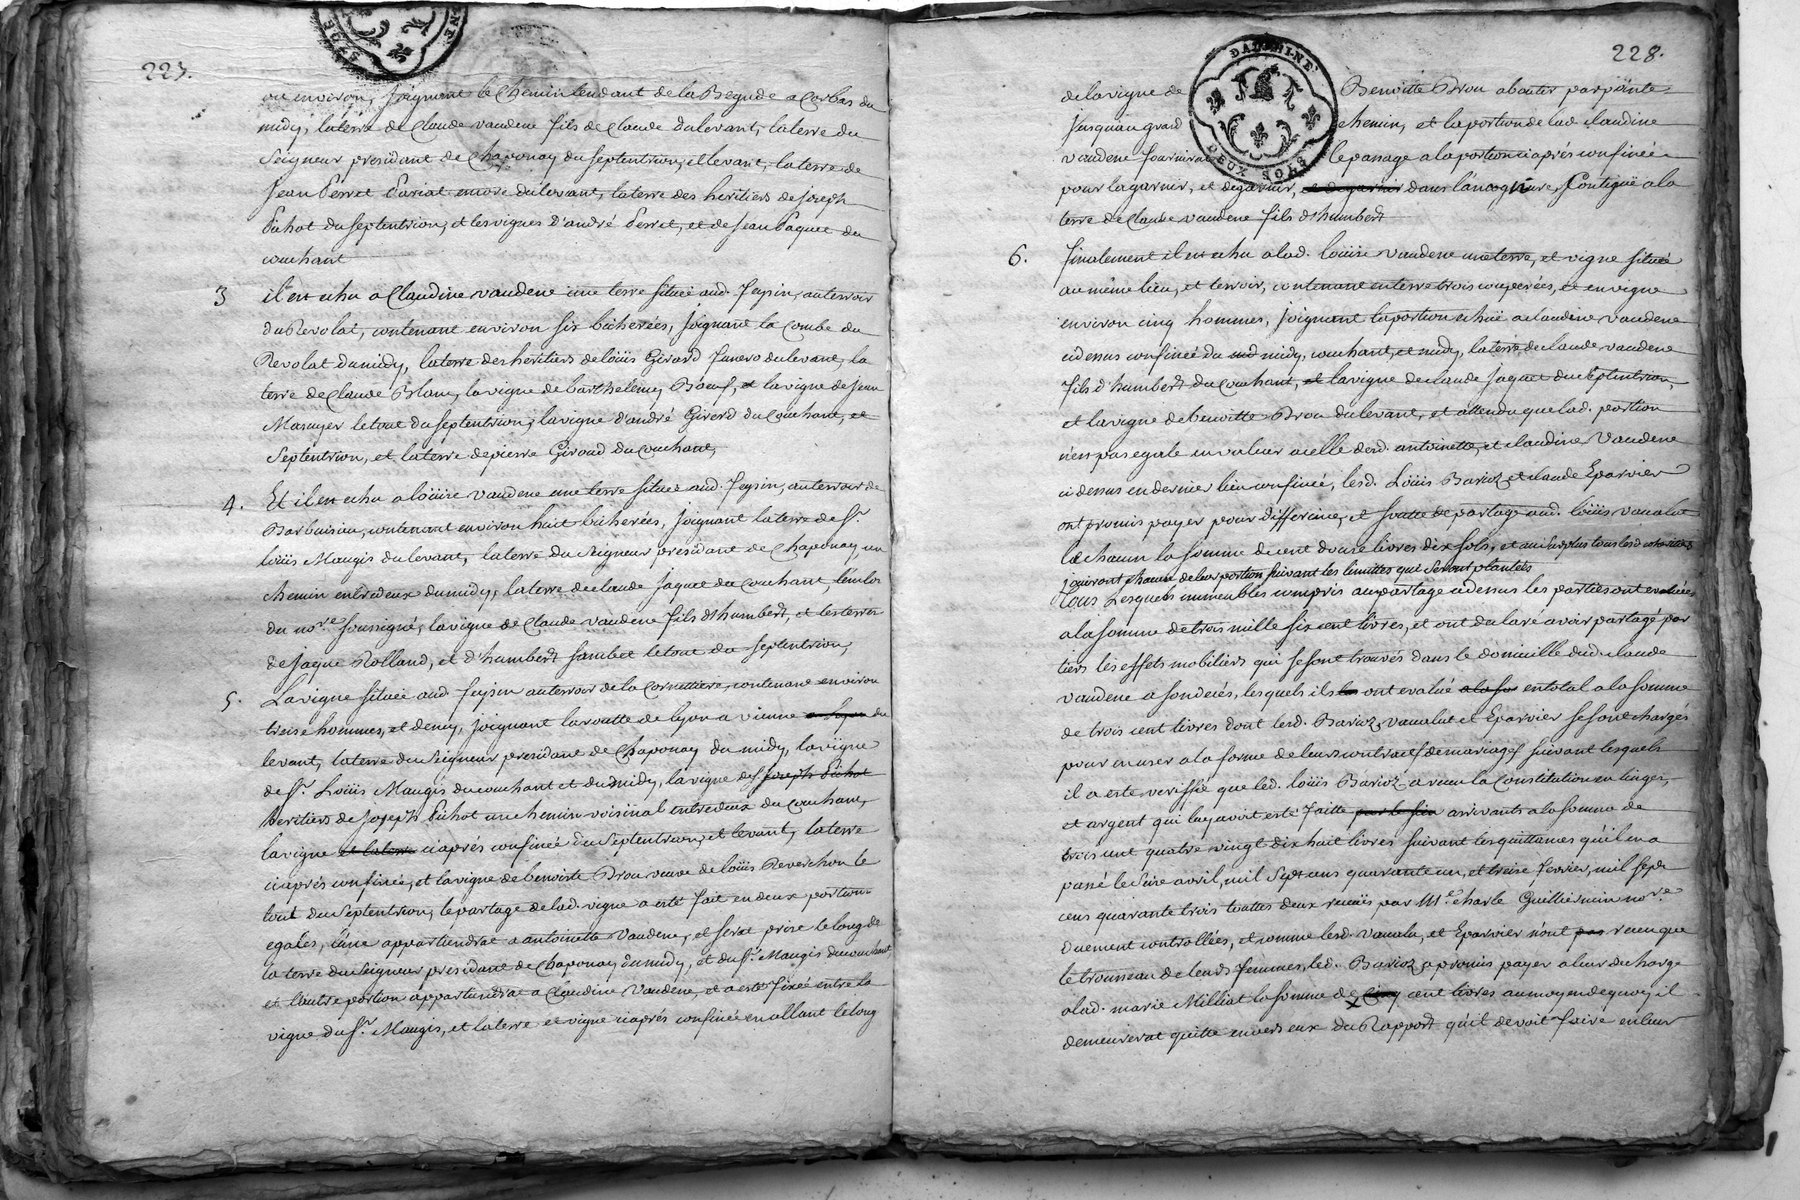 227.
ou environ, Joignant le Chemin tendant de la Begude a Corbas du
midy, la terre de Claude vaudene fils de Claude du levant, la terre du
Seigneur presidant de Chaponay du septentrion, et levant, la terre de
Jean Perret Pariat encore du levant, la terre des heritiers de Joseph
Pichot du septentrion, et les vignes d'andré Perret, et de Jean Paquet du
couchant
3 il est echu a Claudine vaudene une terre située aud. feysin, au terroir
du Revolat, contenant environ six bicherées, Joignant la Combe du
Revolat du midy, la terre des heritiers de loüis Girard du levant, la
terre de Claude Blanc, la vigne de barthelemy Boeuf, et la vigne de Jean
Masuyer le tout du septentrion, la vigne d'andré Girerd du Couchant, et
Septentrion, et la terre de pierre Giroud du Couchant,
4. Et il est echu a loüise vaudene une terre située aud. feysin, au terroir de
Barbuisin, contenant environ huit bicherées, Joignant la terre de Sr.
loüis Maugis du levant, la terre du Seigneur presidant de Chaponay, un
chemin entredeux du midy, la terre de claude Jaquet du Couchant,
du nore. soussigné, la vigne de Claude vaudene fils d'humbert, et les terres
de Jaque Rolland, et d'humbert Sambet le tout du septentrion,
5. La vigne située aud. feysin au terroir de la Cornettiere, contenant environ
treise hommes, et demy, Joignant la routte de lyon a vienne du
levant, la terre du Seigneur presidant de Chaponay du midy, la vigne
de Sr. Loüis Maugis du couchant et du midy, la vigne des Joseph Pichot
heritiers de Joseph Pichot un chemin voisinal entredeux du Couchant,
la vigne et la terre ci aprés confinée du Septentrion, et levant, la terre
ci aprés confinée, et la vigne de benoiste Brou veuve de loüis Reverchon le
tout du Septentrion, le partage de lad. vigne a esté fait en deux portions
egales, l'une appartiendrat a antoinette Vaudene, et serat prise le long de
la terre du Seigneur presidant de Chaponay du midy, et du Sr. Maugis du couchant,
et l'autre portion appartiendrat a Claudine Vaudene, et a esté fixée entre la
vigne du Sr. Maugis, et la terre et vigne ci aprés confinée en allant le long
228.
DAUPHINÉ
DEUX SOLS
de la vigne de Benoitte Brou aboutir par pointe
Jusqu'au grand chemin, et la portion de lad. Claudine
vaudene fournirat le passage a la portion ci aprés confinée
pour la garnir, et degarnir, et degarnir dans l'encognure, Contiguë a la
terre de Claude vaudene fils d'humbert
6. finalement il est echu a lad. loüise vaudene une terre, et vigne située
au même lieu, et terroir, contenant en terre trois couperées, et en vigne
environ cinq hommes, Joignant la portion echuë a claudine vaudene
ci dessus confinée du midy, couchant, et midy, la terre de claude vaudene
fils d'humbert du Couchant, et la vigne de claude Jaquet du Septentrion,
et la vigne de benoitte Brou du levant, et attendu que lad. portion
n'est pas egale en valeur a celle desd. antoinette, et claudine Vaudene
ci dessus en dernier lieu confinée, lesd. Loüis Barioz et claude Eparvier
ont promis payer pour difference, et soutte de partage aud. loüis vacalut
chacun la somme de cent douse livres dix sols, et au surplus tous lesd.
Jouiront chacun de leur portion suivant les limittes qui seront plantées
Tous Lesquels immeubles compris au partage ci dessus les parties ont evalués
a la somme de trois mille six cent livres, et ont declaré avoir partagé par
tiers les effets mobiliers qui se sont trouvés dans le domicille dud. claude
vaudene a son decés, lesquels ils ont evalué a la so en total a la somme
de trois cent livres dont lesd. Barioz, vacalut et Eparvier se sont chargés
pour en user a la forme de leurs contracts de mariages, suivant lesquels
il a esté verifié que led. loüis Barioz, a recu la Constitution en linges,
et argent qui luy avoit esté faitte arrivants a la somme de
trois cent quatre vingt dix huit livres suivant les quittances qu'il en a
passé le seise avril, mil sept cens quarante un, et treise fevrier, mil sept
cens quarante trois touttes deux recuës par Me. charle Guilliermin nore.
duement controllées, et comme lesd. vacalu, et Eparvier n'ont pas recu que
le trousseau de leurs femmes, led. Barioz a promis payer a leur decharge
a lad. marie Milliat la somme de cinq cent livres au moyen de quoy il
demeurerat quitte envers eux du Rapport qu'il devoit faire en leur